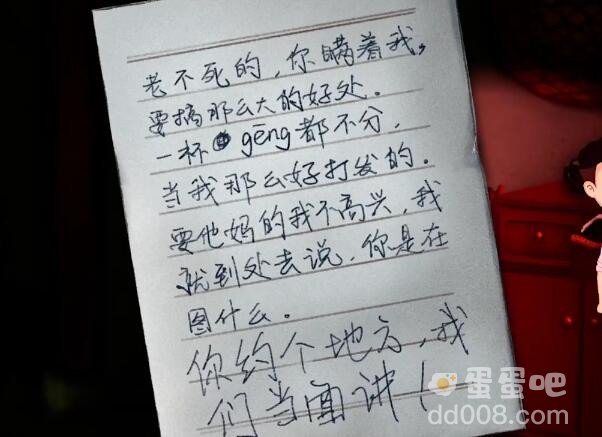 老不死的，你瞒着我，
要搞那么大的好处．
一杯gēng都不分．
当我那么好打发的．
要他妈的我不高兴，我
就到处去说，你是在
图什么。
你约个地方，我
们当面讲（
蛋蛋吧
dd008.com